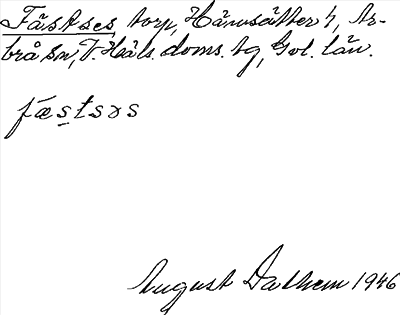 Fäskses torp, Hänsätter 4, Ar-
brå sn, V. Häls. doms. tg, Gvl. län.
fæstsɤs
August Dalhem 1946